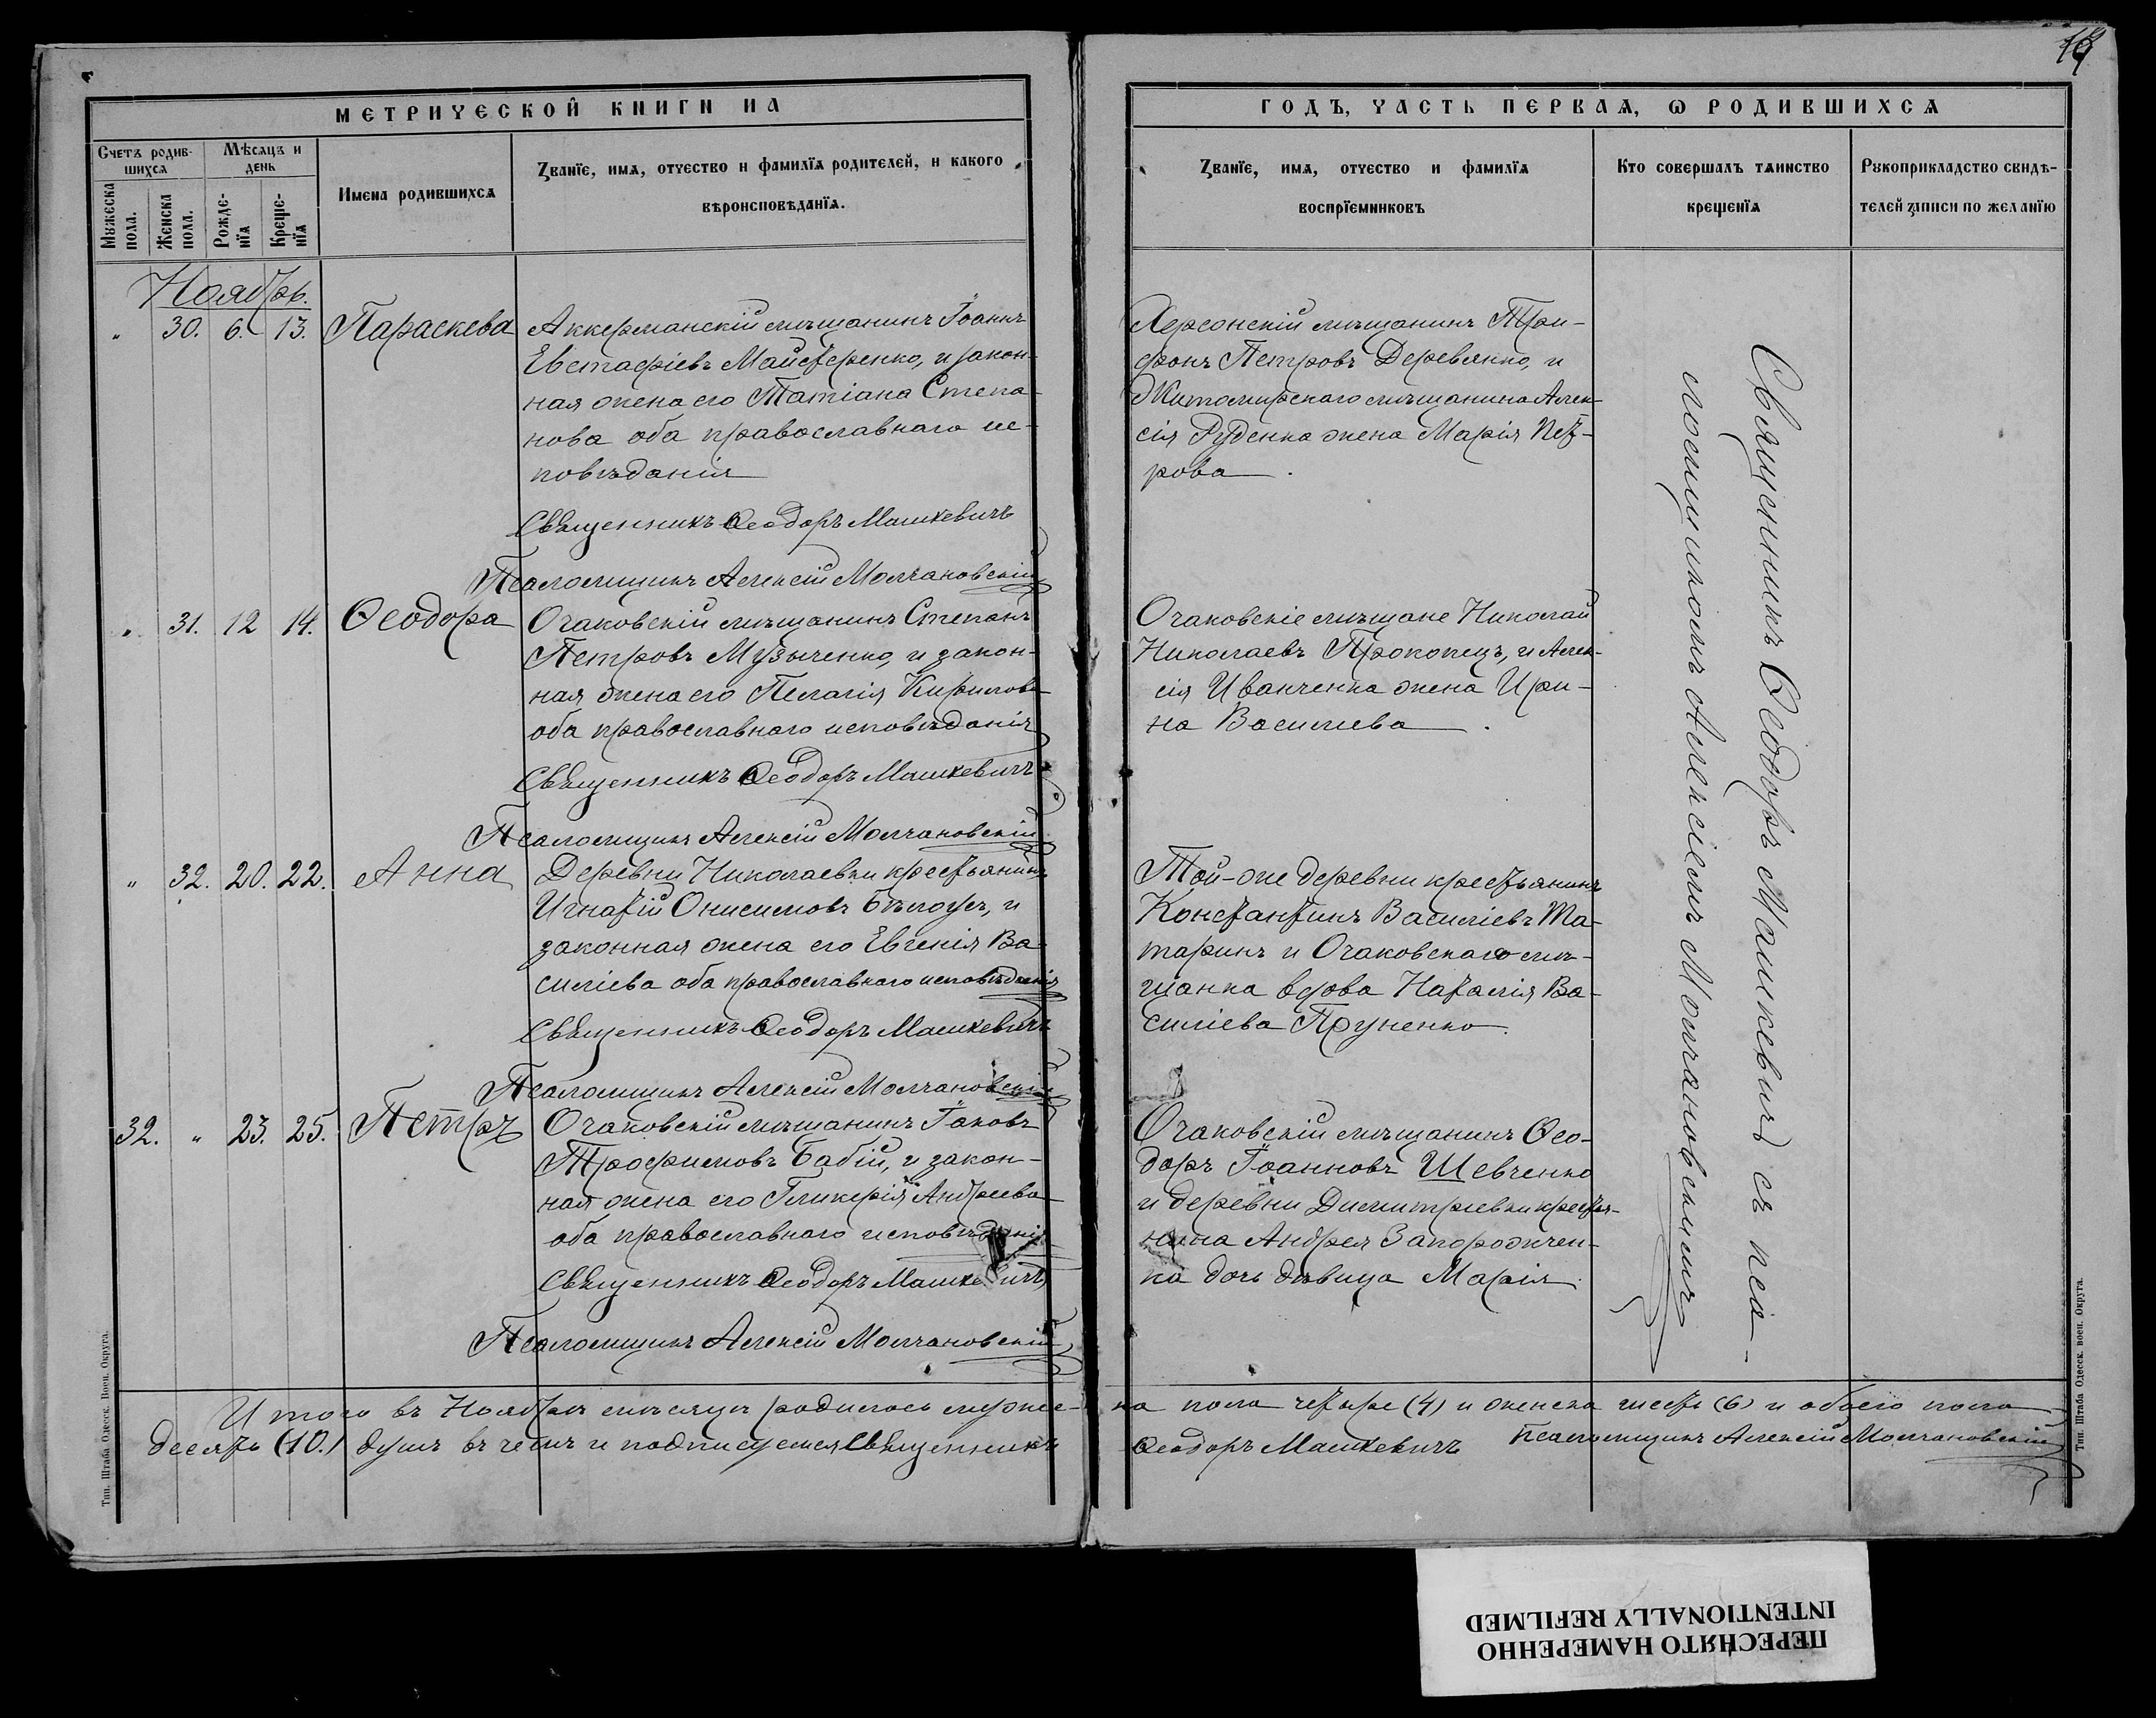 19
МЕТРИЧЕСКОЙ КНИГИ НА
ГОДЪ, ЧАСТЬ ПЕРВАѦ, Ѡ РОДИВШИХСѦ
Счетъ родив-
шихсѧ
Мѣсѧцъ и
день
Мꙋжеска
пола.
Женска
пола.
Рожде-
нїѧ
Креще-
нїѧ
Имена родившихсѧ
Званїе, имѧ, отчество и фамилїѧ родителей, и какого
вѣроисповѣданїѧ.
Званїе, имѧ, отчество и фамилїѧ
воспрїемниковъ
Кто совершалъ таинство
крещенїѧ
Рꙋкоприкладство свидѣ-
телей записи по желанїю
Ноябрь.
" 30. 6. 13. Параскева
Аккерманскій мѣщанинъ Іоаннъ
Евстафіевъ Майстеренко, и закон-
ная жена его Татіана Степа-
нова оба православнаго ис-
повѣданія
Священникъ Ѳеодоръ Машкевичъ
Псаломщикъ Алексій Молчановскій
Херсонскій мѣщанинъ Три-
фонъ Петровъ Деревянко, и
Житомирскаго мѣщанина Алек-
сія Руденка жена Марія Пет-
рова.
" 31. 12 14. Ѳеодора
Очаковскій мѣщанинъ Степанъ
Петровъ Музыченко, и закон-
ная жена его Пелагія Кирилова
оба православнаго исповѣданія
Священникъ Ѳеодоръ Машкевичъ
Псаломщикъ Алексій Молчановскій
Очаковскіе мѣщане Николай
Николаевъ Прокопецъ, и Алек-
сія Иванченка жена Ири-
на Василиева.
" 32. 20. 22. Анна
Деревни Николаевки крестьянинъ
Игнатій Онисимовъ Бѣлоусъ, и
законная жена его Евгенія Ва-
силіева оба православнаго исповѣданія
Священникъ Ѳеодоръ Машкевичъ
Псаломщикъ Алексій Молчановскій
Той-же деревни крестьянинъ
Константинъ Василіевъ Та-
таринъ и Очаковскаго мѣ-
щанка вдова Наталія Ва-
силіева
32. " 23. 25. Петръ
Очаковскій мѣщанинъ Іаковъ
Трофимовъ Бабій, и закон-
ная жена его Гликерія Андреева
оба православнаго исповѣданія
Священникъ Ѳеодоръ Машкевичъ
Псаломщикъ Алексій Молчановскій
Очаковскій мѣщанинъ Ѳео-
доръ Іоанновъ Шевченко
и деревни Димитриевки крестья-
нина Андрея Запорожчен-
ка дочь дѣвица Марія.
Священникъ Ѳеодоръ Машкевичъ съ пса-
ломщикомъ Алексіемъ Молчановскимъ
Итого въ Ноябрѣ мѣсяцѣ родилось мужес-
ка пола четыре (4) и женска шесть (6) и обоего пола
десять (10.) душъ въ чемъ и подписуемся Священникъ
Ѳеодоръ Машкевичъ Псаломщикъ Алексій Молчановскій
Тип. Штаба Одесск. Воен. Округа.
Тип. Штаба Одесск. воен. Округа.
ПЕРЕСНЯТО НАМЕРЕННО
INTENTIONALLY REFILMED